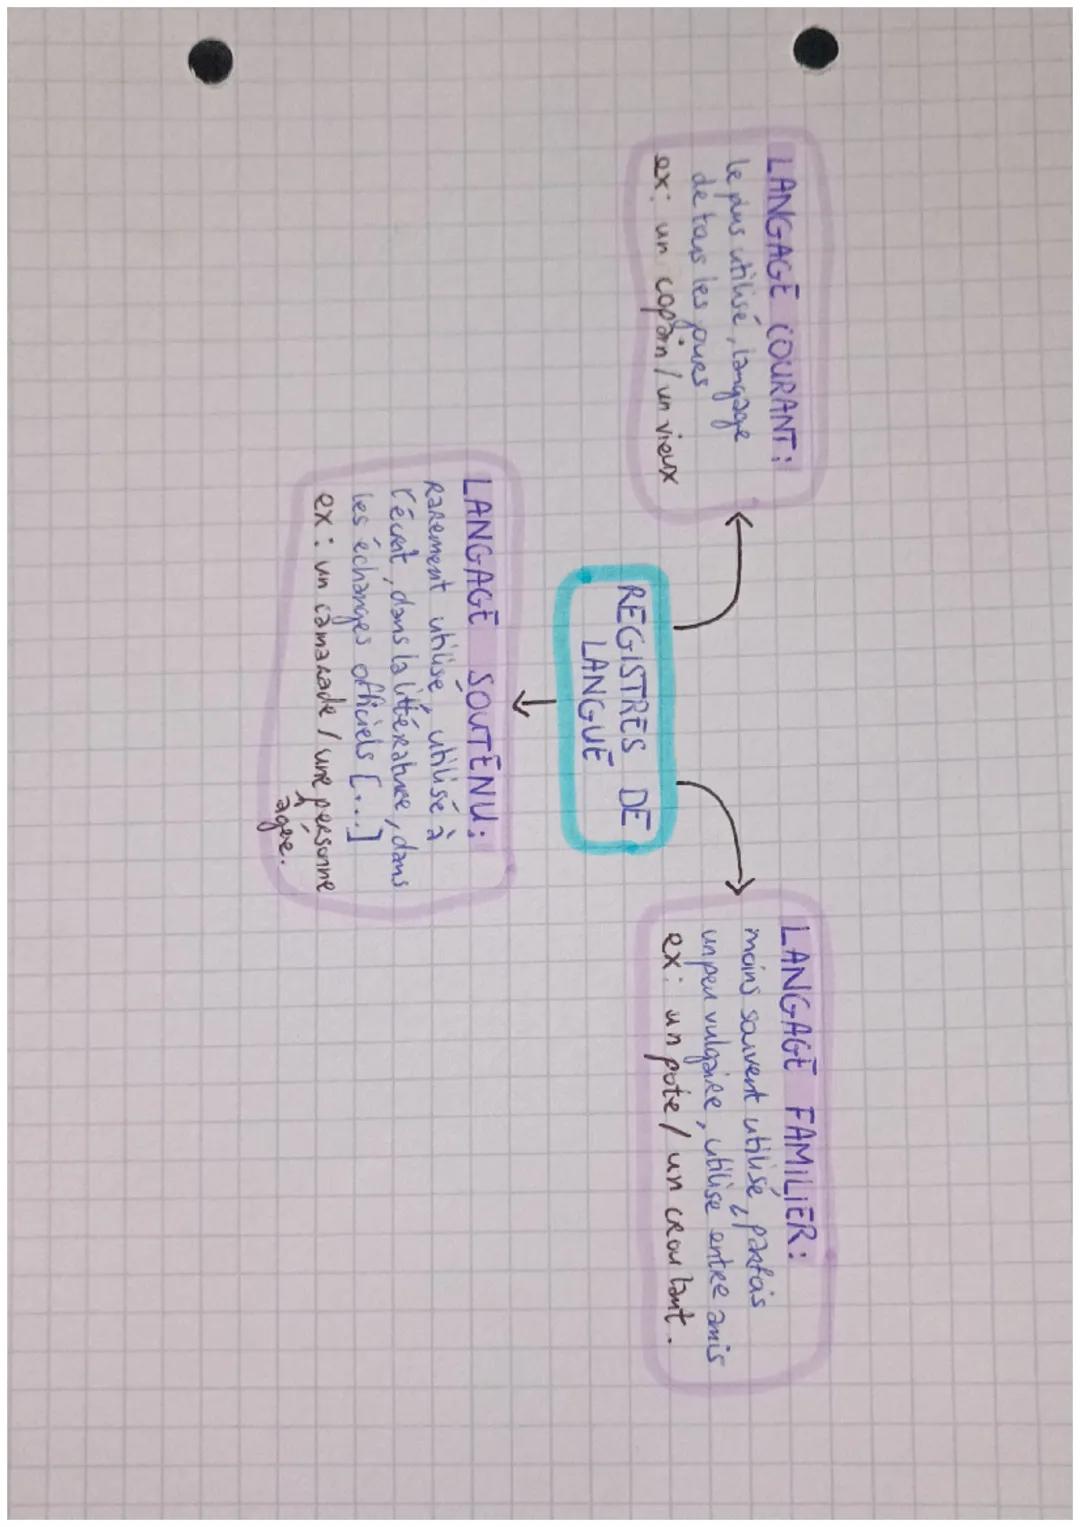 REGISTRES DE
LANGUE
LANGAGE COURANT :
le plus utilisé, langage
de tous les jours
ex : un copain / un vieux
LANGAGE FAMILIER :
moins souvent utilisé, parfois
un peu vulgaire, utilisé entre amis
ex : un pote / un croulant.
LANGAGE SOUTENU :
rarement utilisé, utilisé à
l'écrit, dans la littérature, dans
les échanges officiels [...]
ex : un camarade / une personne
âgée.